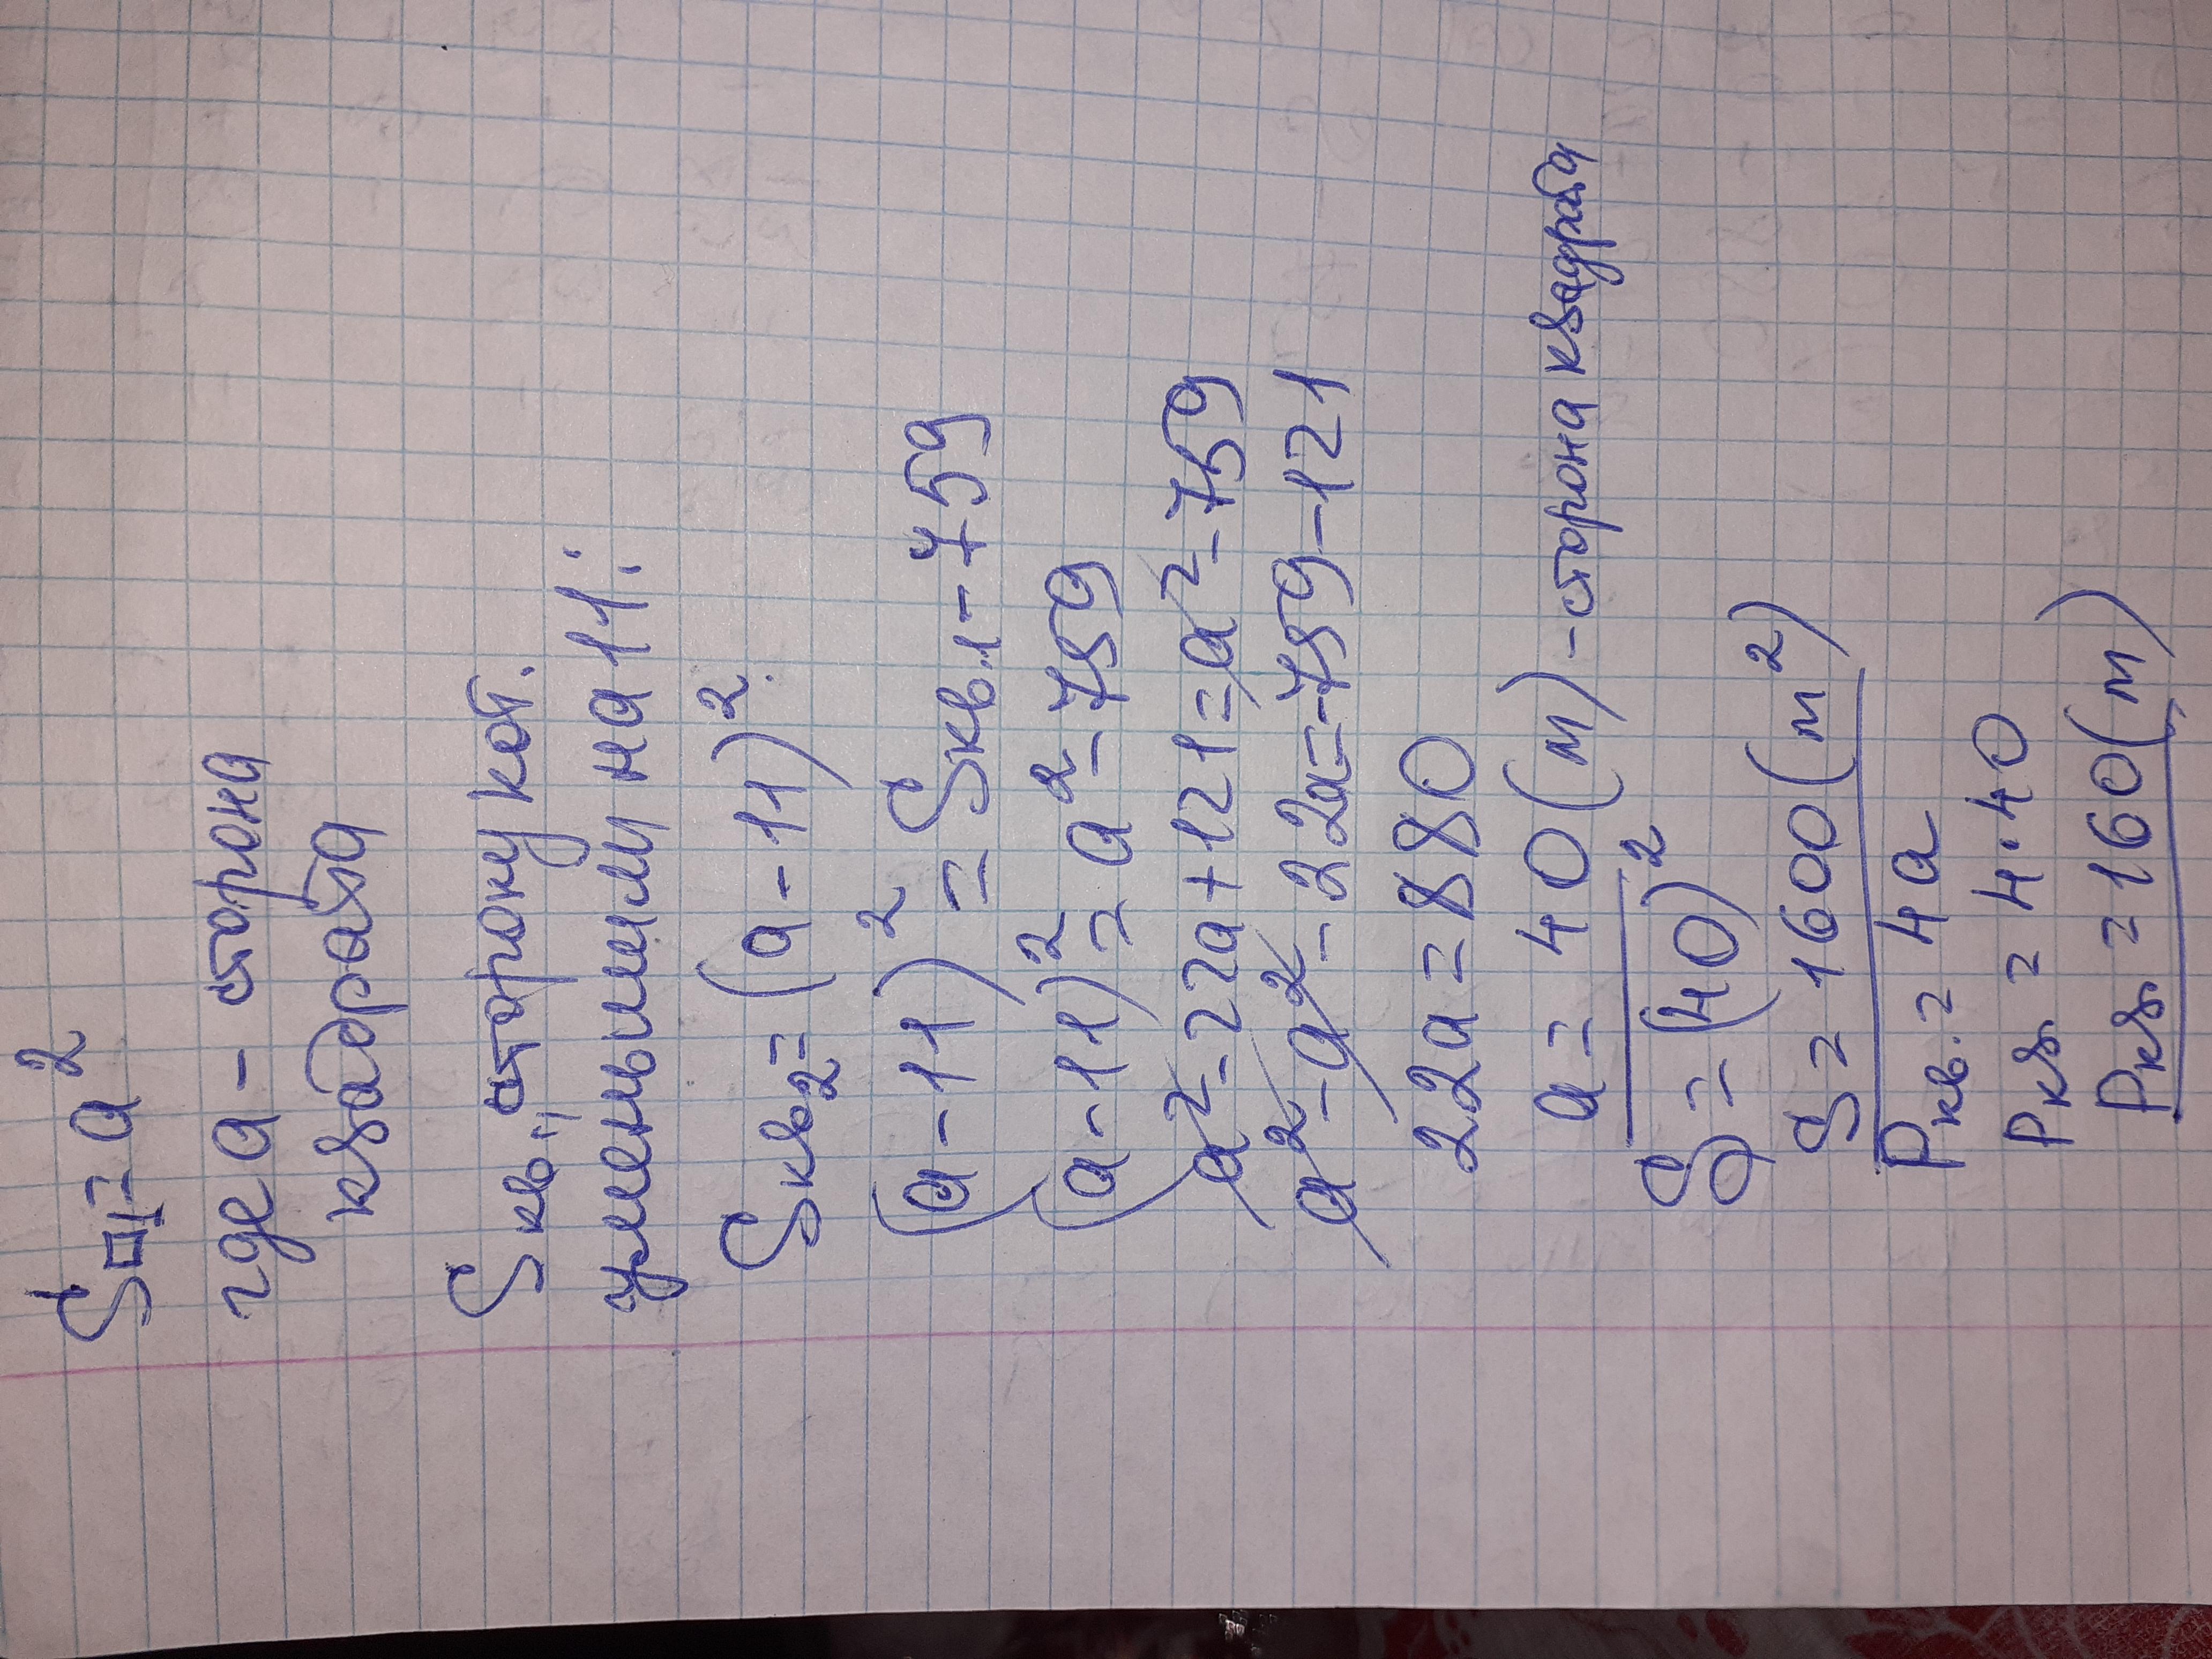 S□1 = a²
где a - сторона
квадрата
Sкв₂, сторону кот.
уменьшили на 11:
Sкв₂ = (a-11)².
(a-11)² = Sкв.1 - 759
(a-11)² = a² - 759
a² - 22a + 121 = a² - 759
a² - a² - 22a = -759 - 121
22a = 880
a = 40 (м) - сторона квадрата
S = (40)²
S = 1600 (м²)
Pкв. = 4a
Pкв. = 4·40
Pкв. = 160 (м)